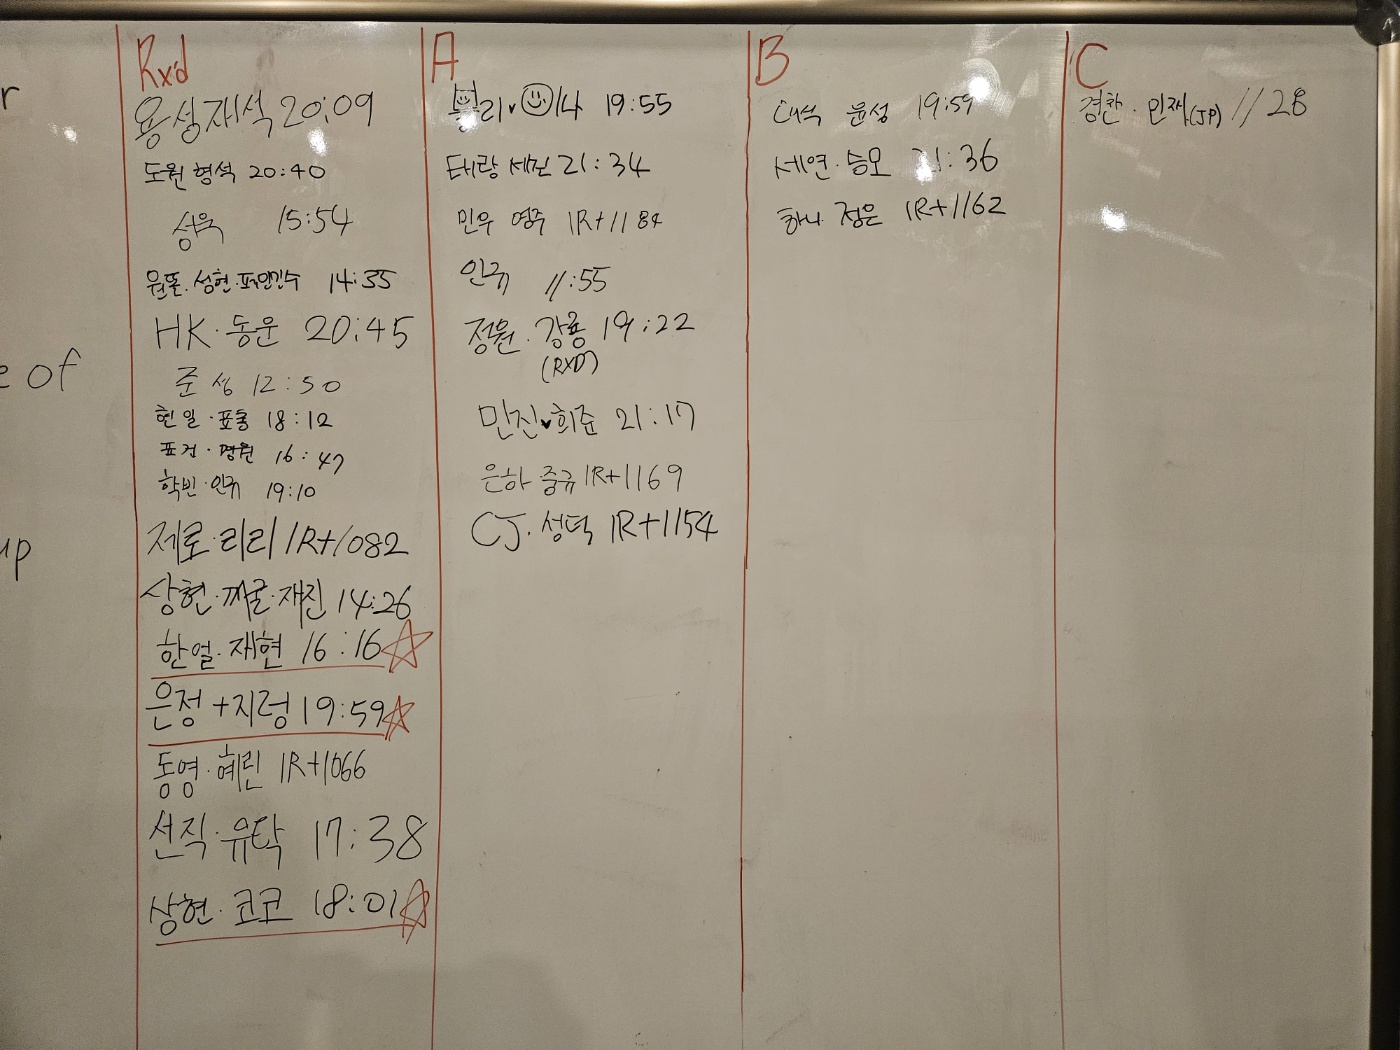 r
e of
up
Rxd
용성 재석 20:09
도원 형석 20:40
성욱 15:54
원똘. 성현. 14:35
HK. 동운 20:45
준성 12:50
현일. 표충 18:12
표건. 16:47
학빈. 인규 19:10
제로. 리리 1R+1082
상현. 째굴. 재진 14:26
한얼. 재현 16:16
은정 + 지령 19:59
동영. 혜린 1R+1066
선직. 유탁 17:38
상현. 코코 18:01
A
19:55
태랑 세진 21:34
민우 영주 1R+1184
인규 11:55
정원. 강룡 19:22
(RXD)
민진♥희준 21:17
은하 중규 1R+1169
CJ. 성덕 1R+1154
B
대석 윤성 19:59
세연. 승모 21:36
하나 정은 1R+1162
C
경찬. 민재(JP) 11:28